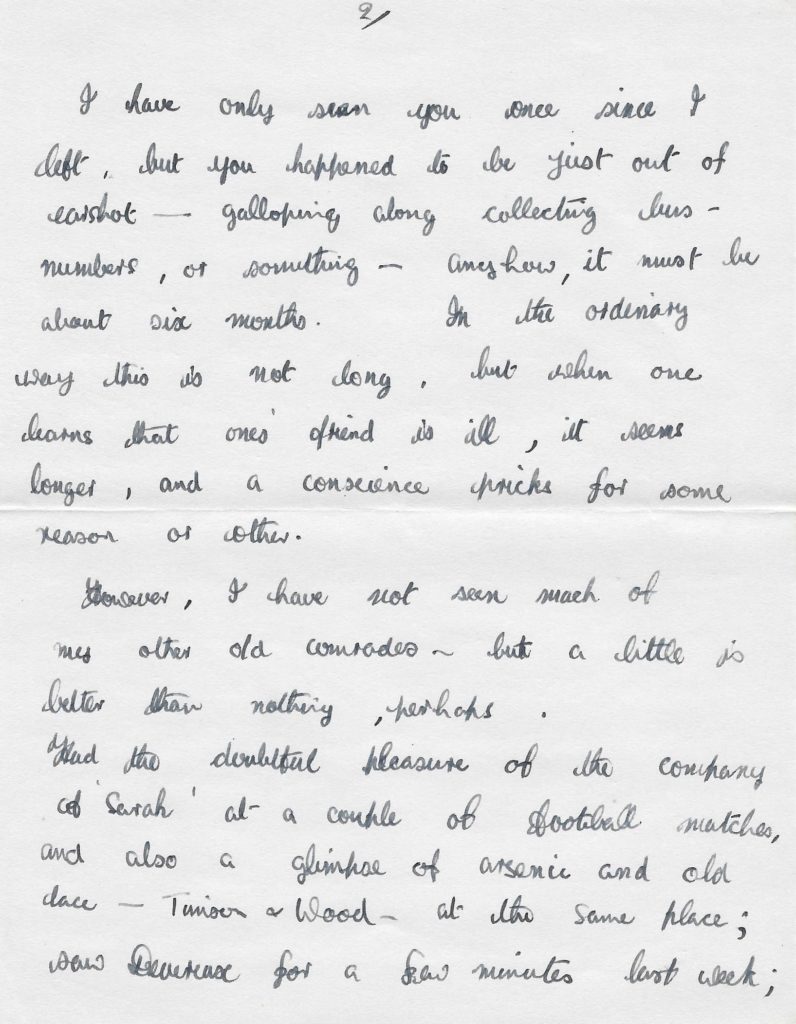 2/
I have only seen you once since I
left, but you happened to be just out of
earshot — galloping along collecting bus-
numbers, or something — anyhow, it must be
about six months. In the ordinary
way this is not long, but when one
learns that ones' friend is ill, it seems
longer, and a conscience pricks for some
reason or other.
However, I have not seen much of
my other old comrades ~ but a little is
better than nothing, perhaps.
Had the doubtful pleasure of the company
of 'Sarah' at a couple of football matches,
and also a glimpse of arsenic and old
lace — & Wood — at the same place;
saw for a few minutes last week;